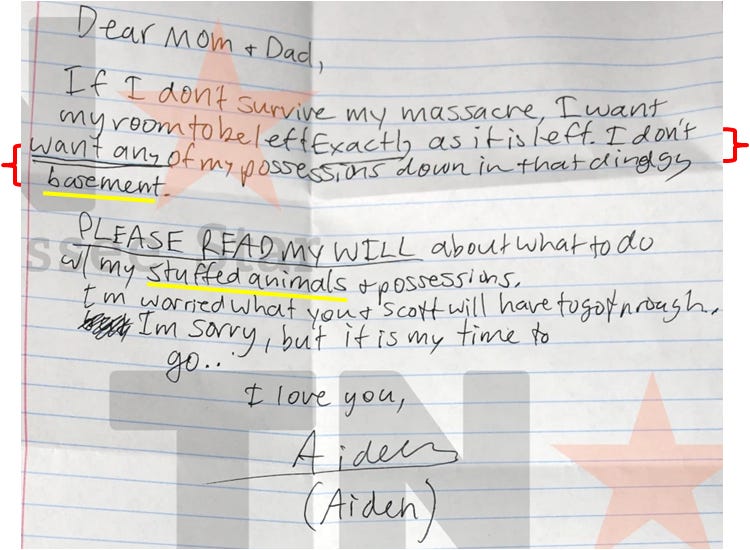 Dear Mom + Dad,
If I don't survive my massacre, I want
my room to be left Exactly as it is left. I don't
want any of my possessions down in that dingy
basement.
PLEASE READ MY WILL about what to do
w/ my stuffed animals + possessions.
I'm worried what you + Scott will have to go through.
Im sorry, but it is my time to
go..
I love you,
Aiden
(Aiden)
TN